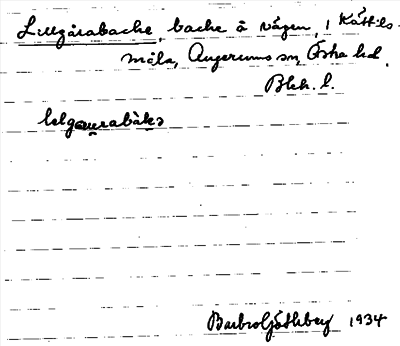 Lillgårabacke, backe å vägen, i Kättils-
måla, Augerums sn, Östra hd.
Blek. l.
lelgœ̣rabàkə
Barbro Göthberg 1934